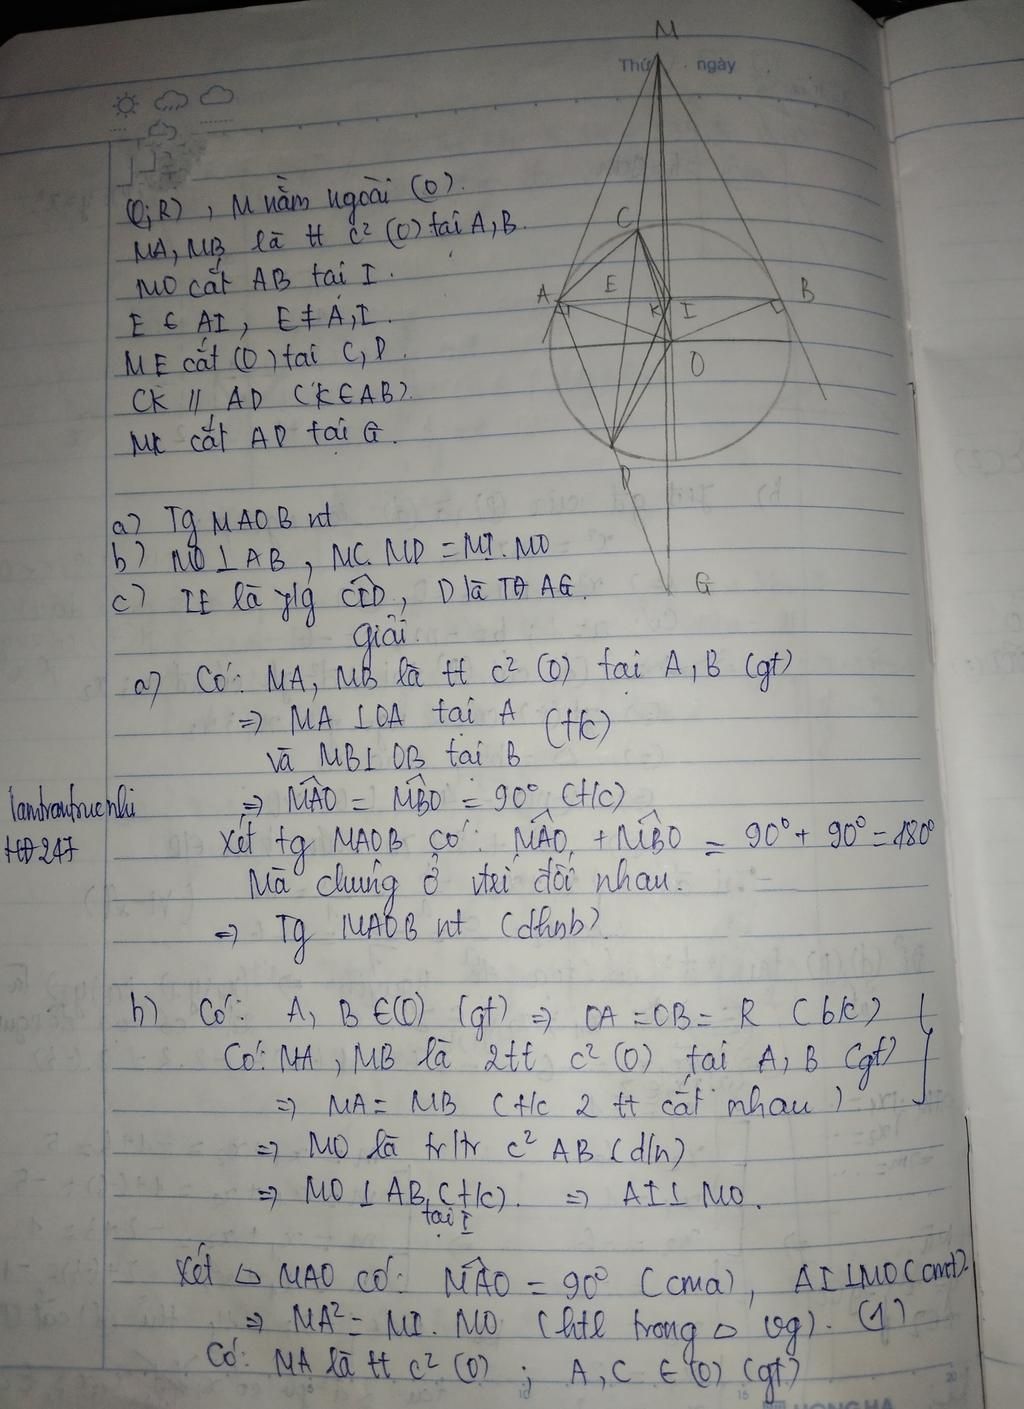 M
Thứ ngày
(O;R), M nằm ngoài (O).
MA, MB là tt c² (O) tại A, B.
MO cắt AB tại I.
E ∈ AI, E ≠ A, I.
ME cắt (O) tại C, D.
CK // AD (K ∈ AB).
MK cắt AD tại G.
C
A E K I B
O
D
G
a) Tg MAOB nt
b) MO ⊥ AB, MC. MD = MI. MO
c) IE là p/g CID, D là TĐ AG.
Giải.
a) Có: MA, MB là tt c² (O) tại A, B (gt)
⇒ MA ⊥ OA tại A (t/c)
và MB ⊥ OB tại B
lamtrantrucnhi
HĐ247
⇒ MAO = MBO = 90° (t/c)
Xét tg MAOB có: MAO + MBO = 90° + 90° = 180°
Mà chúng ở vtrí đối nhau.
⇒ Tg MAOB nt (dhnb).
b) Có: A, B ∈ (O) (gt) ⇒ OA = OB = R (b/c)
Có: MA, MB là 2tt c² (O) tại A, B (gt)
⇒ MA = MB (t/c 2 tt cắt nhau)
⇒ MO là tr/tr c² AB (d/n)
⇒ MO ⊥ AB (t/c). ⇒ AI ⊥ MO.
tại I
Xét △ MAO có: MAO = 90° (cma), AI ⊥ MO (cmt).
⇒ MA² = MI. MO (htl trong △ vg). (1)
Có: MA là tt c² (O); A, C ∈ (O) (gt)
HONG HA